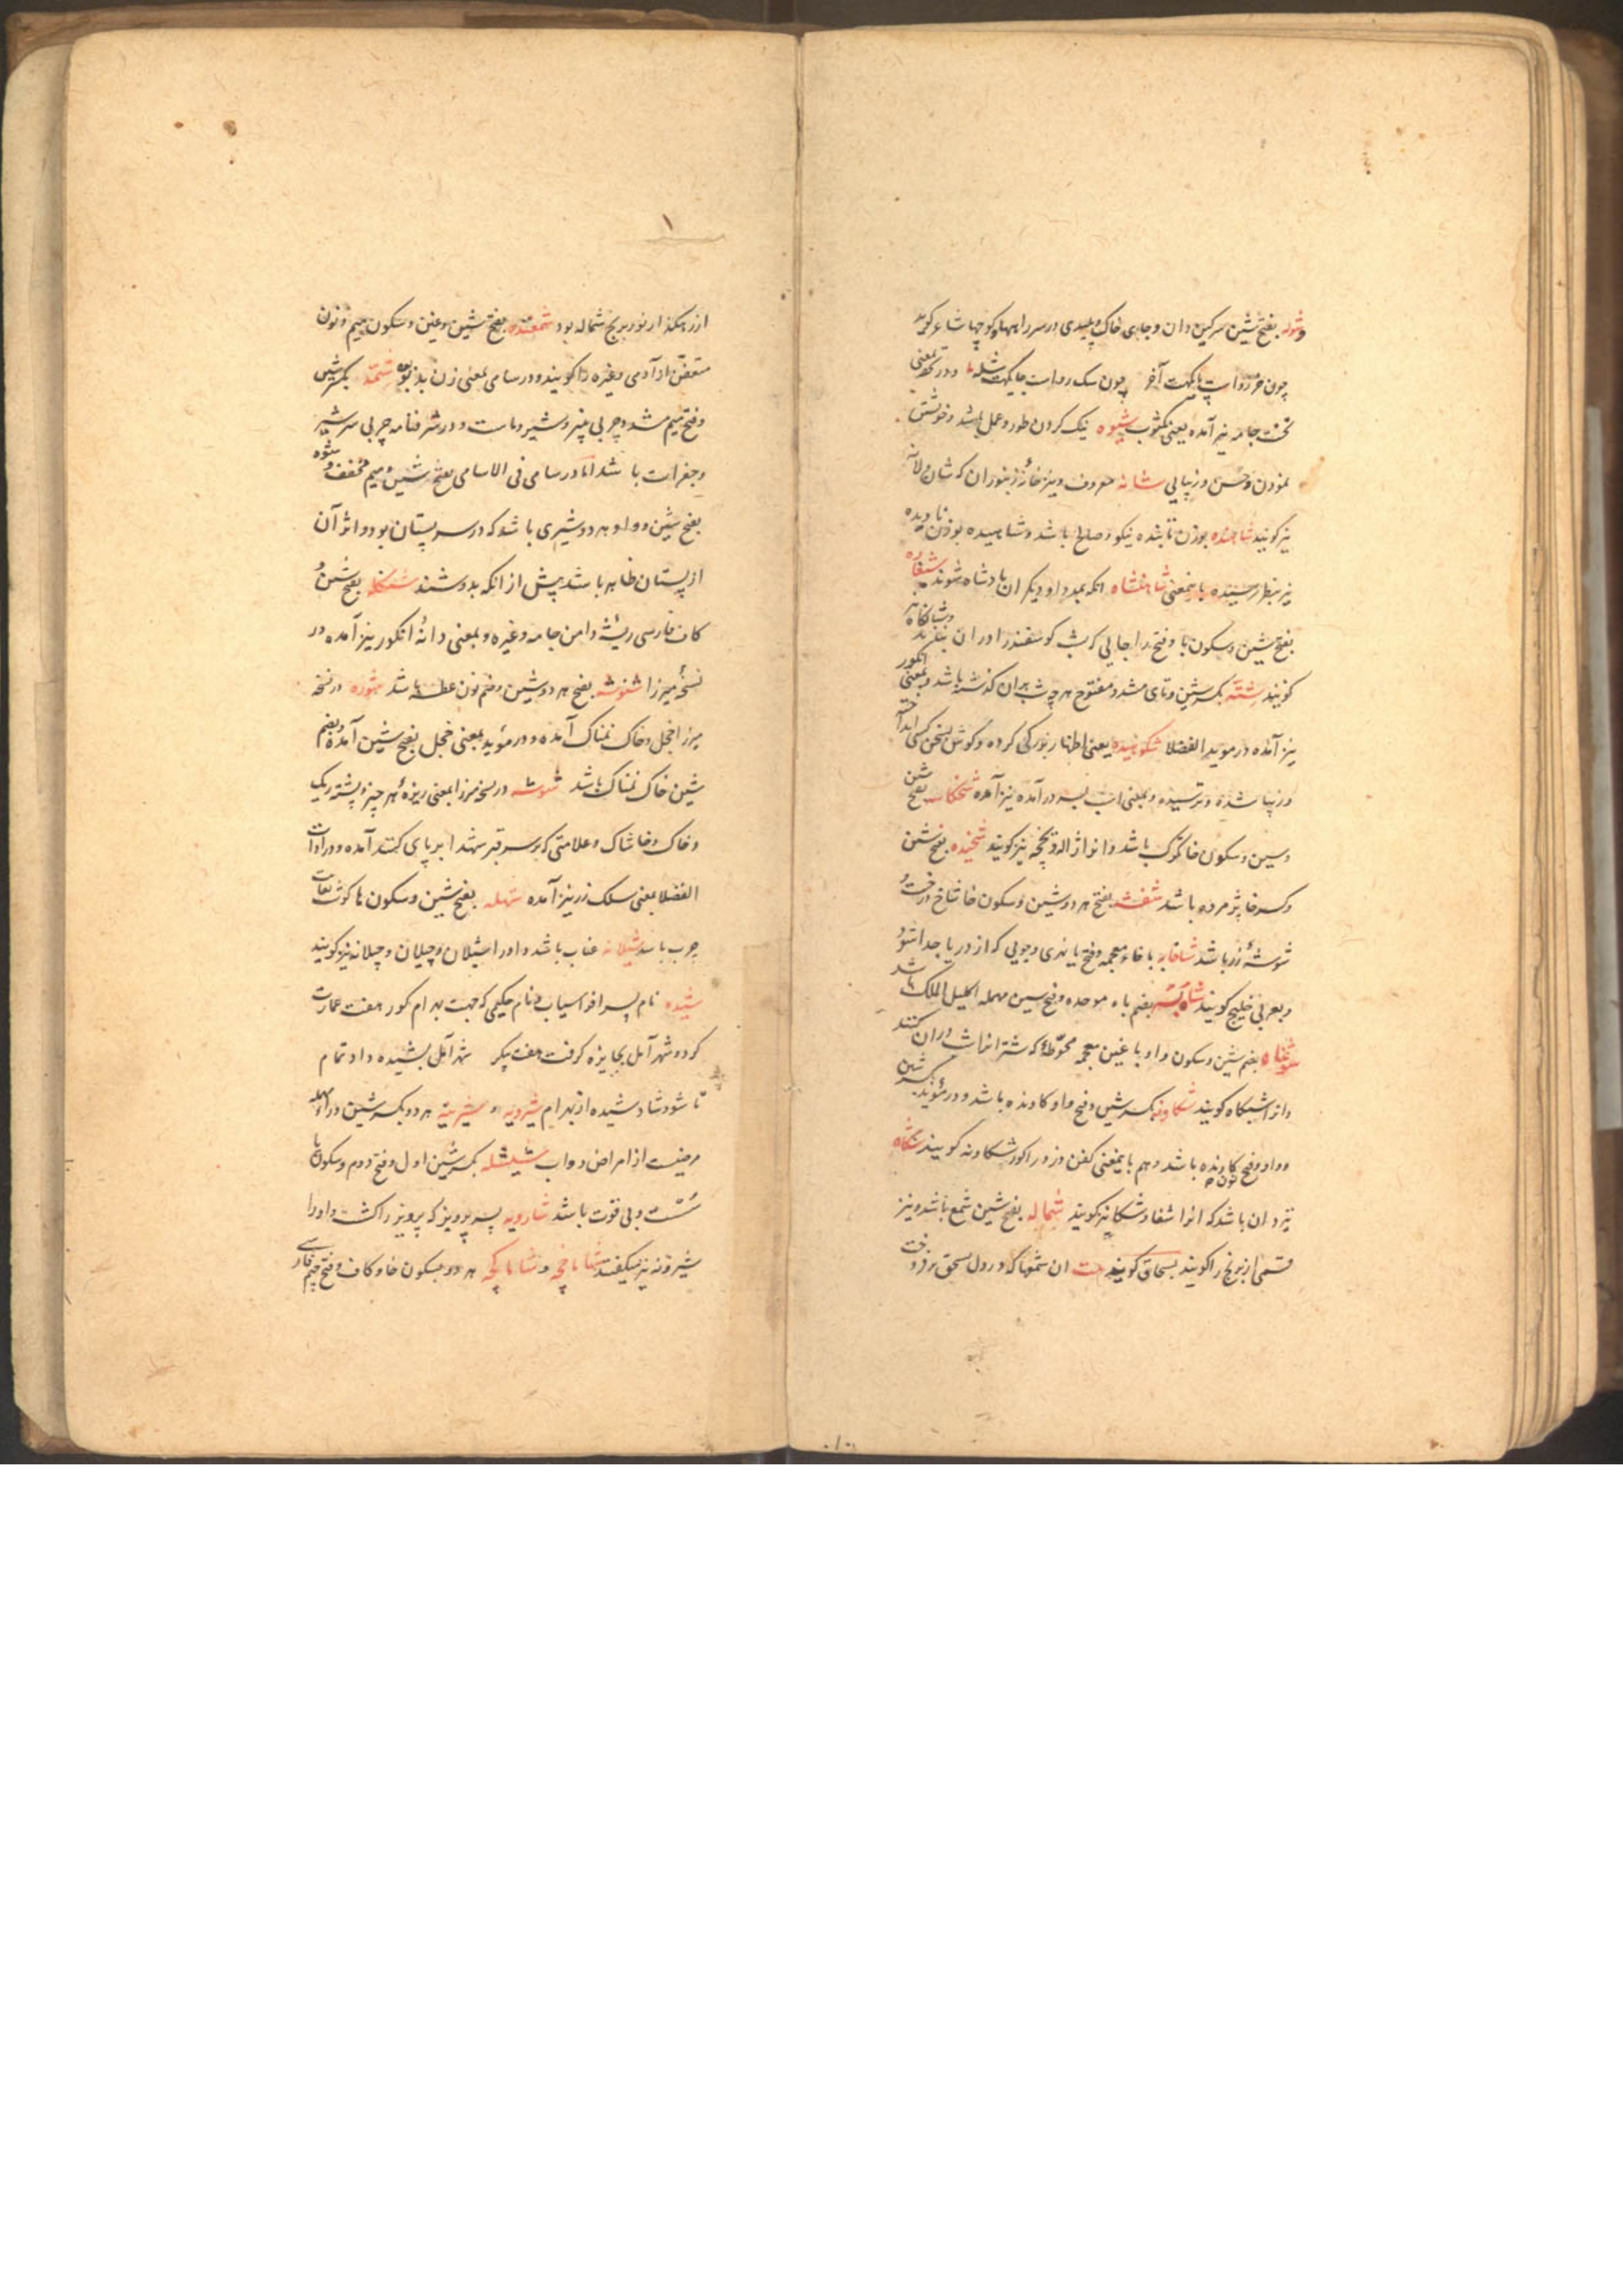 وشوله بفتح شین سرکین دان و جای خاک و پلیدی در سر راهها و کوچها شاعر کوید
چون خر رواست پایکهت آخر چون سک رواست جایکهت شوله و در نسخه بمعنی
نیز آمده یعنی مکتوب شیوه نیک کردن طور و عمل باشد و خوش
نمودن و حسن و زیبایی شانه معروف و نیز خانه زنبوران که شان و لانه
نیز کویند شاهنده بوزن تابنده نیکو و صالح باشد و شاهیده بوزن نادیده
نیز بنظر رسیده باین معنی شاهنشاه انکه بمدد او دیکران پادشاه شوند
بفتح شین و سکون با و فتح را جایی که شب کوسفند را دران
کویند شته بکسر شین و تای مشدد مفتوح هر چه شب بران کذشته باشد و بمعنی انکور
نیز آمده در موید الفضلا شکوهیده یعنی اظهار بزرکی کرده و کوش بسخن کسی انداخت
و زیبا شده و ترسیده و بمعنی اسب بسر درآمده نیز آمده شخکاسه بفتح شین
و سین و سکون خا تکرک باشد و انرا ژاله و یخچه نیز کویند شخیده بفتح شین
و کسر خا پژمرده باشد شفشه بفتح هر دو شین و سکون فا شاخ درخت و
شوشه زر باشد شاخابه با خاء معجمه و فتح با نهری و جویی که از دریا جدا شود
و بعربی خلیج کویند شاه بسه بضم باء موحده و فتح سین مهمله اکلیل الملک باشد
شوغاه بضم شین و سکون واو با غین معجمه محوطه که شترانرا شب دران کنند
و انرا شبکاه کویند شکاونه بکسر شین و فتح واو کاونده باشد و در موید بکسر شین
و واو و فتح نون کاونده باشد و هم باینمعنی کفن دزد را کور شکاونه کویند شکاه
تیردان باشد که انرا شغا و شکا نیز کویند شماله بفتح شین شمع باشد و نیز
قسمی از برنج را کویند بسحاق کوید بیت ان شمعها که در دل بسحق برفروخت
از رهکذار نور برنج شماله بود شمغنده بفتح شین و غین و سکون میم و نون
متعفن از آدمی و غیره را کویند و در سامی بمعنی زن بدبو شمه بکسر شین
و فتح میم مشدد چربی پنیر و شیر و ماست و در شرفنامه چربی سر شیر
و جغرات باشد اما در سامی فی الاسامی بفتح شین و میم مخفف و شوه
بفتح شین و واو هر دو شیری باشد که در سر پستان بود و اثر آن
از پستان ظاهر باشد پیش از انکه بدوشند شنکله بفتح شین و
کاف فارسی ریشه دامن جامه و غیره و بمعنی دانه انکور نیز آمده در
نسخه میرزا شنوشه بفتح هر دو شین و ضم نون عطسه باشد شوره در نسخه
میرزا خجل و خاک نمناک آمده و در موید بمعنی خجل بفتح شین آمده و بضم
شین خاک نمناک باشد شوشه در نسخه میرزا بمعنی ریزه هر چیز و پشته ریک
و خاک و خاشاک و علامتی که بر سر قبر شهدا بر پای کنند آمده و در ادات
الفضلا بمعنی سلک زر نیز آمده شهله بفتح شین و سکون ها کوشت بغایت
چرب باشد شیلانه عناب باشد و اورا شیلان و چیلان و چیلانه نیز کویند
شیده نام پسر افراسیاب و نام حکیمی که جهت بهرام کور هفت عمارت
کرد و شهر آمل بجایزه کرفت هفت پیکر شهر آمل بشیده داد تمام
تا شود شاد شیده از بهرام شیرونه و شیرینه هر دو بکسر شین و راء مهمله
مرضیست از امراض دواب شیشله بکسر شین اول و فتح دوم و سکون یا
سست و بی قوت باشد شارویه پسر پرویز که پرویز را کشت و اورا
شیرونه نیز میکفتند شاماخچه و شاماکچه هر دو بسکون خا و کاف و فتح جیم فارسی